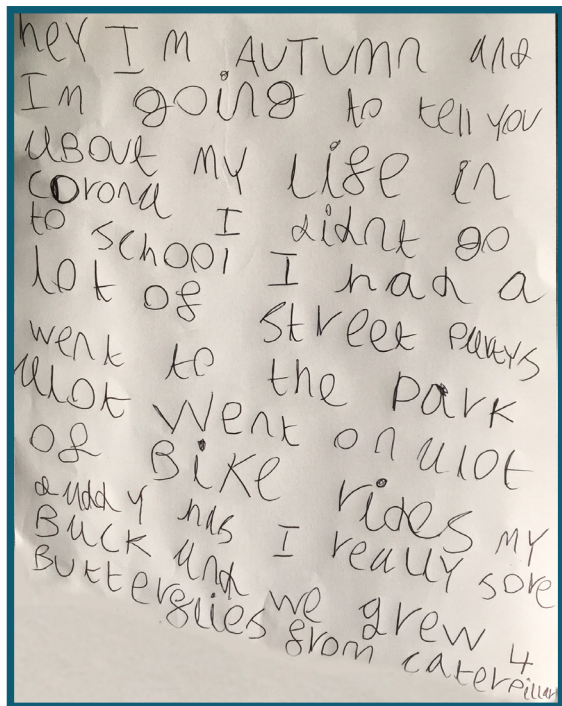 hey Im AUTUMn and
Im going to tell you
aBout my life in
corona I didnt go
to school I had a
lot of street partys
went to the park
alot went on alot
of Bike rides my
daddy has I really sore
Back and we grew 4
Butterflies from caterpillars